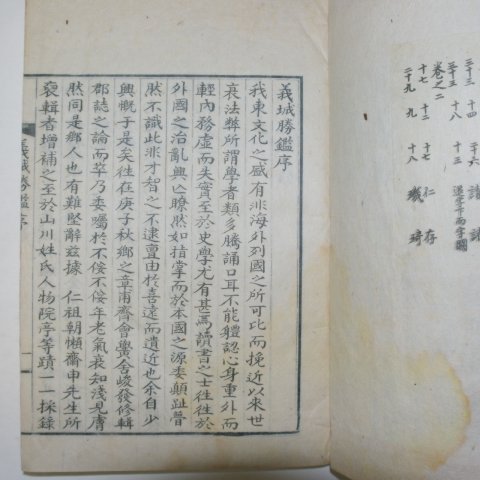 三十三 十四 諸 諸
十八 十五
卷之二
十七 十二 十七 仁 存
二十九 九 十八 璣 琦
義城勝鑑序
我東文化之盛有非海外列國之所可比而挽近以來世
衰法弊所謂學者類多騰誦口耳不能軆認心身重外而
輕內務虛而失實至於史學尤有甚焉讀書之士往往於
外國之治亂興亡瞭然如指掌而於本國之源委顚趾瞢
然不識此非才智之不逮亶由於喜遠而遺近也余自少
興慨于是矣往在庚子秋鄕之章甫齊會黌舍峻發修輯
郡誌之論而草乃委囑於不佞不佞年老氣衰知淺見膚
然同是鄕人也有難堅辭玆據 仁祖朝懶齋申先生所
裒輯者增補之至於山川姓氏人物院亭等蹟一一採錄
義城勝鑑序 一